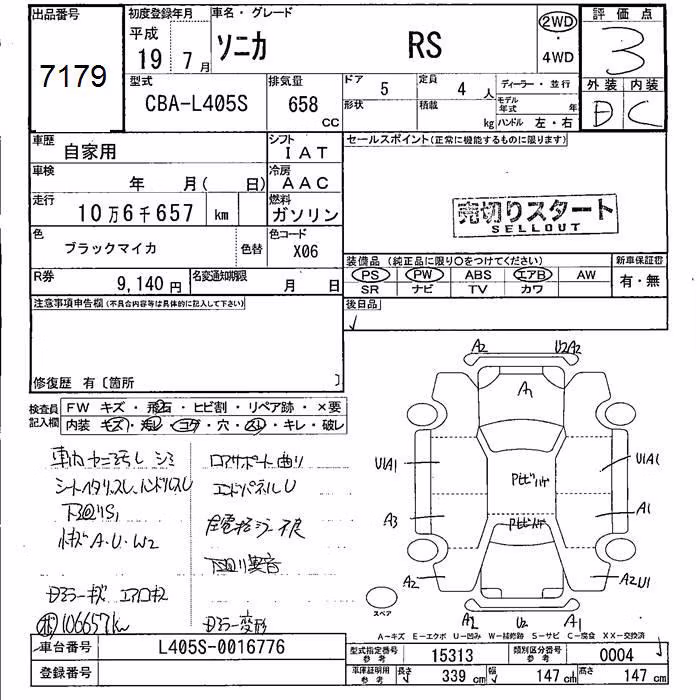 出品番号
7179
初度登録年月
平成
19 7月
車名・グレード
ソニカ RS
2WD
・
4WD
評価点
3
外装 内装
D C
型式
CBA-L405S
排気量
658
CC
ドア
5
形状
定員
4人
積載
kg
ディーラー・並行
モデル年式 年
ハンドル 左・右
車歴
自家用
シフト
IAT
車検
年 月( 日)
冷房
AAC
走行
10万6千657 km
燃料
ガソリン
色
ブラックマイカ
色替
色コード
X06
R券
9,140円
名変通知期限
月 日
セールスポイント(正常に機能するものに限ります)
売切りスタート
SELLOUT
装備品(純正品に限り○をつけてください)
PS PW ABS エアB AW
SR ナビ TV カワ
新車保証書
有・無
後日品
注意事項申告欄(不具合内容等は具体的に記入して下さい)
修復歴 有〔箇所
検査員記入欄
FW キズ・飛石・ヒビ割・リペア跡・×要
内装 キズ・汚レ・コゲ・穴・スレ・キレ・破レ
シミ
ロアサポート曲り
エンドパネルU
小キズA・U・W2
下回り異音
ドアミラーキズ エアロキズ
106657km
ドアミラー変形
A2 U2A2
A1
U1A1 U1A1
A3 A1
A2 U2 A2U1
A2 A1
スペア
A-キズ E-エクボ U-凹み W-補修跡 S-サビ C-腐食 XX-交換済
車台番号
L405S-0016776
登録番号
型式指定番号
参考
15313
類別区分番号
参考
0004
車庫証明用
参考
長さ 339 cm 幅 147 cm 高さ 147 cm